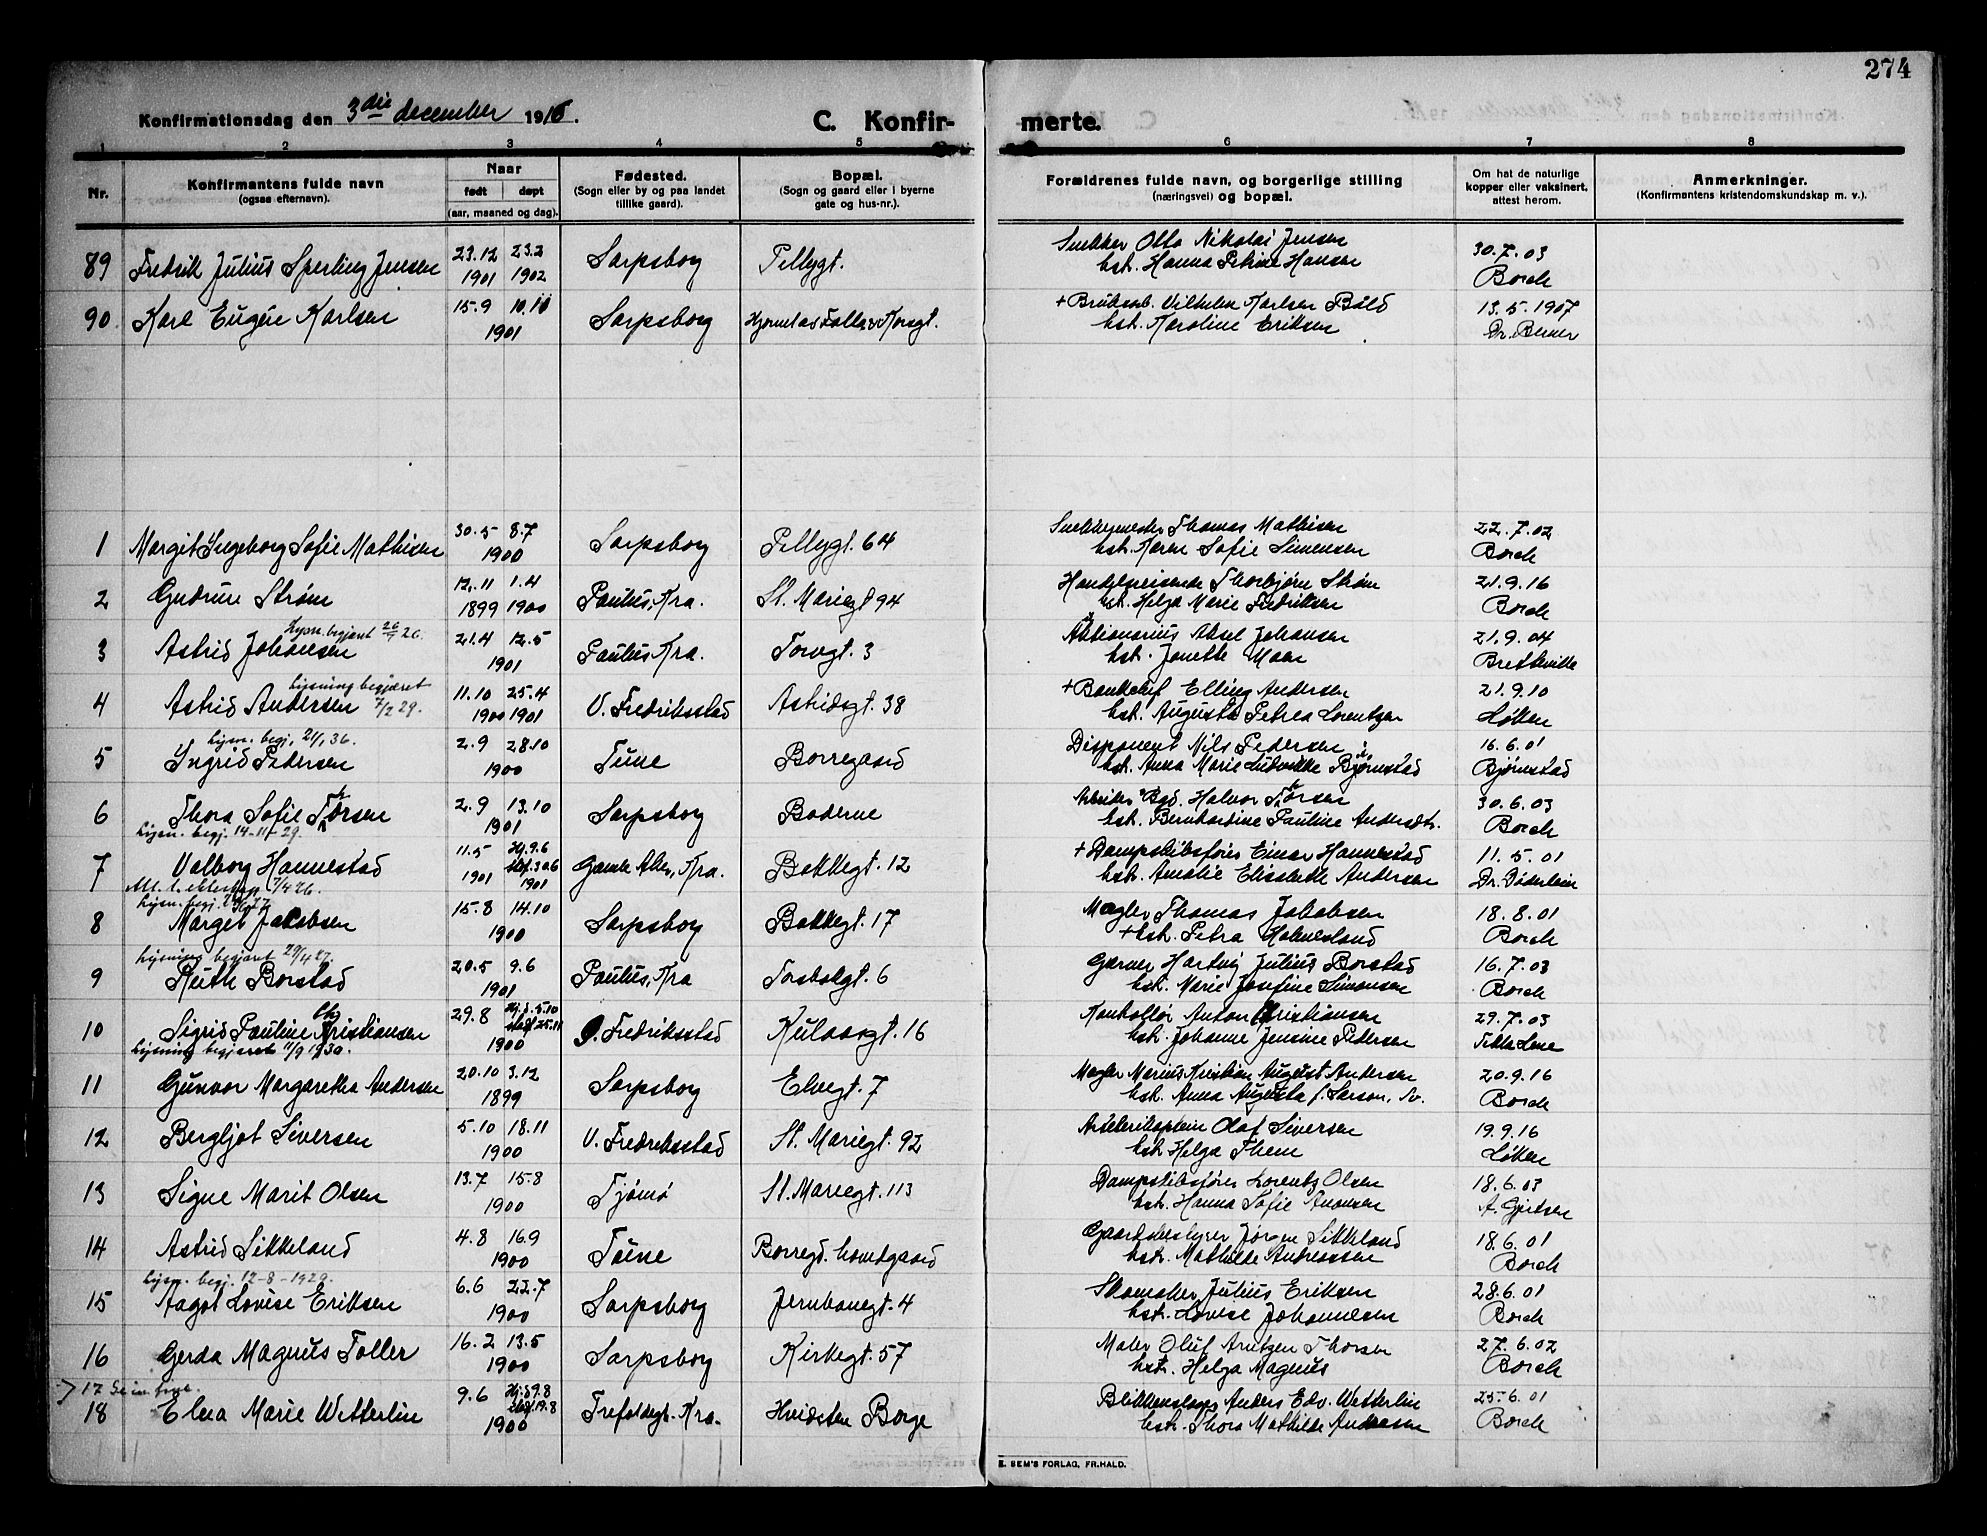 274
Konfirmationsdag den 3die december 1916.
C. Konfir- merte.
1 2 3 4 5 6 7 8
Nr.
Konfirmantens fulde navn
(ogsaa efternavn).
Naar
født døpt
(aar, maaned og dag).
Fødested.
(Sogn eller by og paa landet
tillike gaard).
Bopæl.
(Sogn og gaard eller i byerne
gate og hus-nr.).
Forældrenes fulde navn, og borgerlige stilling
(næringsvei) og bopæl.
Om hat de naturlige
kopper eller vaksinert,
attest herom.
Anmerkninger.
(Konfirmantens kristendomskundskap m. v.).
89 Fredrik Julius Sperling Jensen 23.12 1901 23.2 1902 Sarpsborg Pellygt. Snekker Otto Nikolai Jensen
hst. Hanna Petrine Hansen 30.7.03 Borch
90. Karl Eugen Karlsen 15.9 10.11 1901 Sarpsborg Korsgt. + Vilhelm Karlsen
hst. Karoline Eriksen 13.5.1907 Dr. Berner
1 Margit Ingeborg Sofie Mathisen 30.5 8.7 1900 Sarpsborg Pellygt. 64 Snekkermester Thomas Mathisen
hst. Karen Sofie Simensen 22.7.02 Borch
2 Gudrun Strøm 12.11 1899 1.4 1900 Paulus, Kra. St. Mariegt 94 Handelsreisende Thorbjørn Strøm
hst. Helga Marie Fredriksen 21.9.16 Borch
Lysn. begjæret 20.
3 Astrid Johansen 21.4 12.5 1901 Paulus Kra. Torvgt. 3 Aktuarius Aksel Johansen
hst. Janette Moen 21.9.04
Lysning begjæret 7/2 29.
4 Astrid Andersen 11.10 1900 25.4 1901 V. Fredriksstad Astridsgt. 38 + Elling Andersen
hst. Augusta Petrea Lorentzen 21.9.10 Løken
Lysn. begj. 21/1 36.
5 Ingrid Pedersen 2.9 28.10 1900 Tune Borregaard Disponent Nils Pedersen
hst. Anna Marie Ludvikke Bjørnstad 16.6.01 Bjørnstad
6 Thora Sofie Thorsen 2.9 13.10 1901 Sarpsborg Boderne Arbeider Bgd. Halvor Thorsen
hst. Bernhardine Pauline Andersdtr. 30.6.03 Borch
Lysn. begj. 14-11-29.
7 Valborg Hannestad 11.5 1901 Hj. 9.6 stadf. 30.6 1901 Gamle Aker, Kra. Bakkegt. 12 + Dampskibsfører Einar Hannestad
hst. Amalie Elisabeth Andersen 11.5.01 Dr. Døderlein
8 Marget Jakobsen 15.8 14.10 1900 Sarpsborg Bakkegt. 17 Mægler Thomas Jakobsen
+ hst. Petra Holmesland 18.8.01 Borch
Lysning begjæret 29/4 27.
9 Ruth Borstad 20.5 9.6 1901 Paulus, Kra Torsbekgt. 6 Garver Hartvig Julius Borstad
hst. Marie Josefine Simonsen 16.7.03 Borch
10 Sigrid Pauline Christiansen 29.8 Hj. d. 5.10 stadf. 25.11 1900 Ø. Fredriksstad Kulaasgt. 16 Kontrollør Anton Christiansen
hst. Johanne Jensine Pedersen 29.7.03
Lysning begjæret 11/9 1930.
11 Gunvor Margaretha Andersen 20.10 3.12 1899 Sarpsborg Elvegt. 7 Mægler Marius Kristian August Andersen
hst. Anna Augusta f. Larson. 20.9.16 Borch
12 Bergljot Siversen 5.10 18.11 1900 V. Fredriksstad St. Mariegt. 92 Olaf Siversen
hst Helga Them 19.9.16 Løken
13 Signe Marit Olsen 13.7 15.8 1900 Tjømø St. Mariegt. 113 Dampskibsfører Lorentz Olsen
hst. Hanna Sofie 18.6.03
14 Astrid Sikkeland 4.8 16.9 1900 Tune Borregd. hovedgaard Gaardsbestyrer Jørgen Sikkeland
hst. Mathilde Andreassen 18.6.01 Borch
Lysn. begj. 12-8-1929.
15 Aagot Lovise Eriksen 6.6 22.7 1900 Sarpsborg Jernbanegt. 4 Skomaker Julius Eriksen
hst. Lovise Johannesen 28.6.01 Borch
16 Gerda Magnus Toller 16.2 13.5 1900 Sarpsborg Kirkegt. 57 Maler Oluf Arntzen Thorsen
hst. Helga Magnus 27.6.02 Borch
17
18 Elna Marie Wetterlin 9.6 Hj. d 9.8 stadf. 19.8 1900 Trefoldigh. Kra. Hvidsten Borge Blikkenslager Anders Edv. Wetterlin
hst. Thora Mathilde Andreasen 25.6.01 Borch
E. SEM'S FORLAG, FR.HALD.